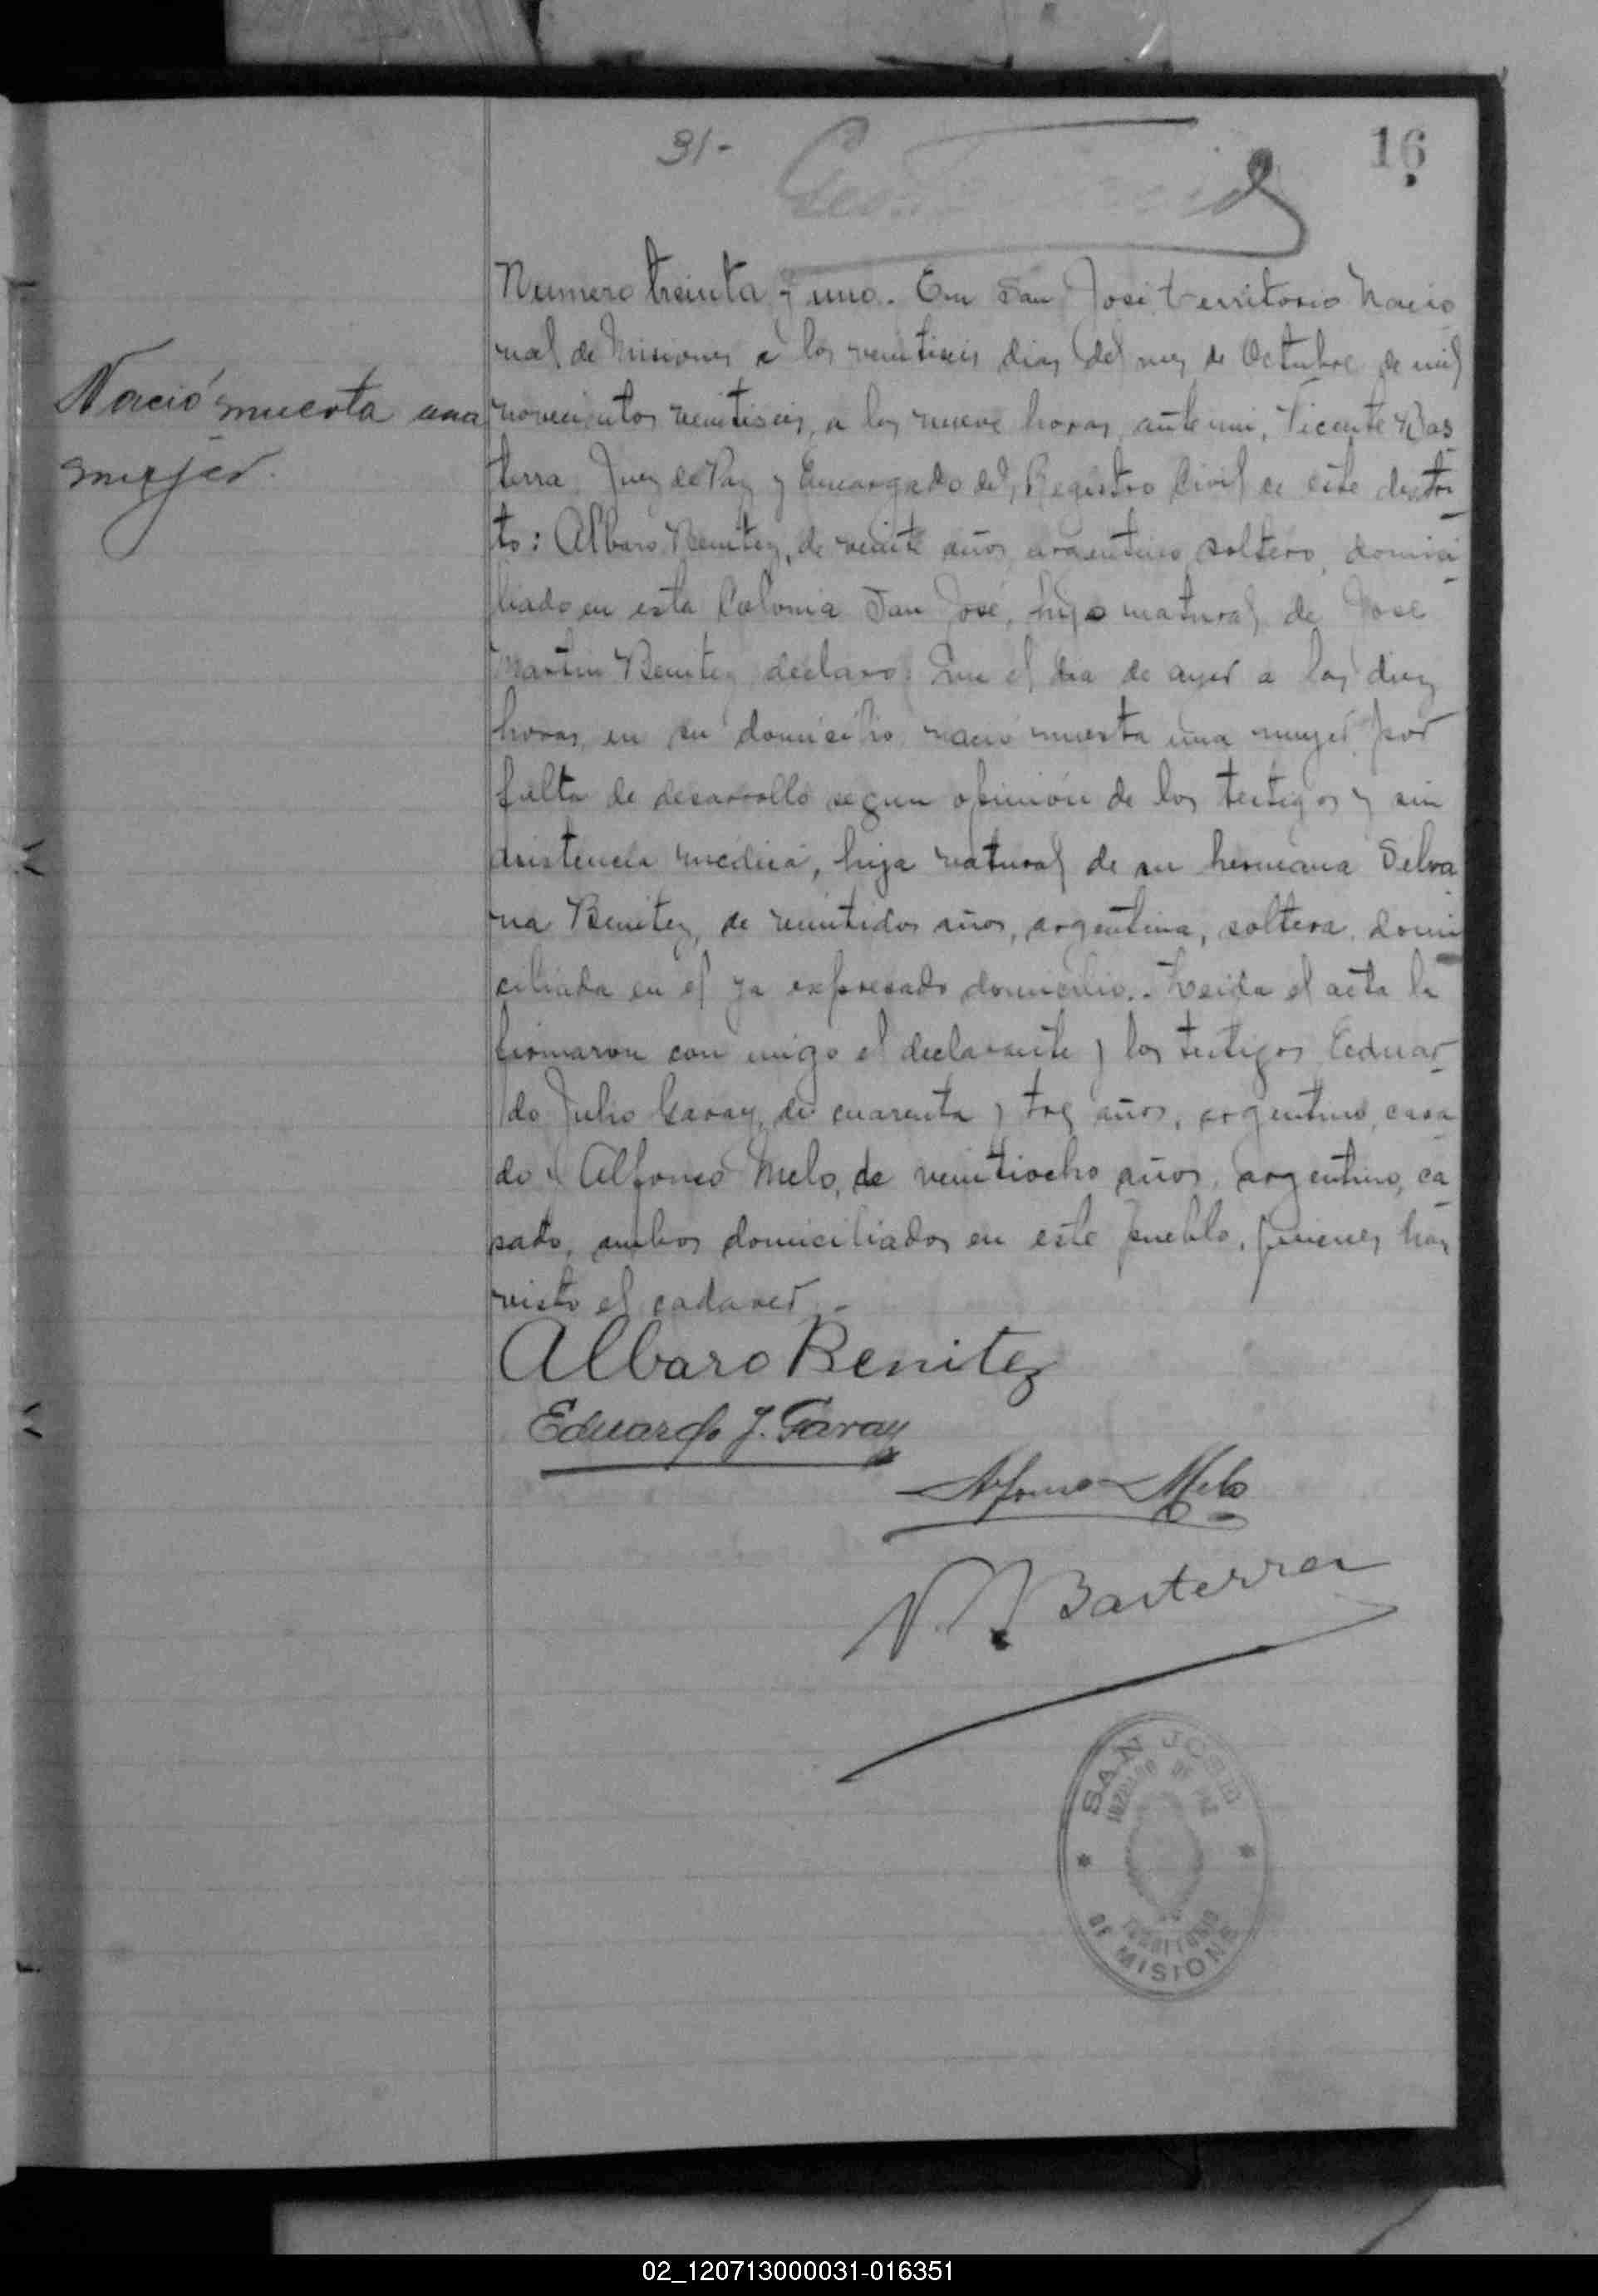 31-
16
Nació muerta una
mujer.
Numero treinta y uno. En San José, territorio Nacio
nal de Misiones a los veintiseis dias del mes de Octubre de mil
novecientos veintiseis, a las nueve horas, ante mi, Vicente Bas
terra, Juez de Paz y Encargado del Registro Civil de este distri
to: Albaro Benitez, de veinte años, argentino, soltero, domici
liado en esta Colonia San José, hijo natural de José
Martin Benitez declaro: Que el dia de ayer a las diez
horas, en su domicilio nació muerta una mujer por
falta de desarrollo segun opinión de los testigos y sin
asistencia medica, hija natural de su hermana Silva
na Benitez, de veintidos años, argentina, soltera, domi
ciliada en el ya expresado domicilio.. Leida el acta la
firmaron con migo el declarante y los testigos Eduar
do Julio Garay, de cuarenta y tres años, argentino, casa
do y Alfonso Melo, de veintiocho años, argentino, ca
sado, ambos domiciliados en este pueblo, quienes han
visto el cadaver.-
Albaro Benitez
Eduardo J. Garay
Alfonso Melo
V. Basterra
SAN JOSE
JUZGADO DE PAZ
TERRITORIO
DE MISIONES
02_120713000031-016351